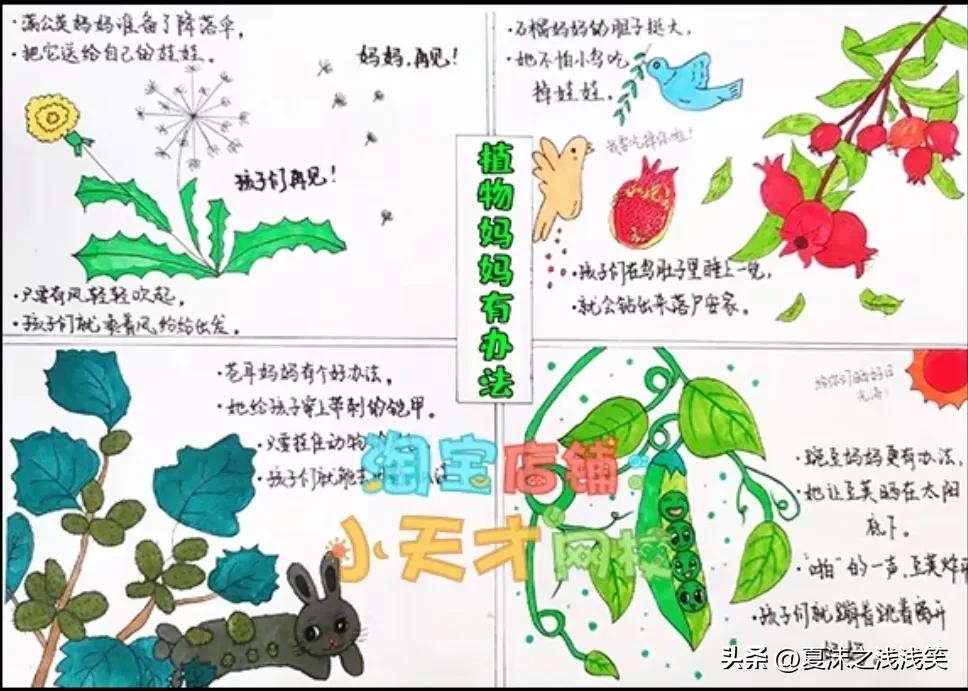 ·蒲公英妈妈准备了降落伞,
·把它送给自己的娃娃。
妈妈,再见!
孩子们再见!
·只要有风轻轻吹起,
·孩子们就乘着风纷纷出发。
植物妈妈有办法
·石榴妈妈的胆子挺大,
·她不怕小鸟吃
掉娃娃。
我要吃掉你啦!
·孩子们在鸟肚子里睡上一觉,
·就会钻出来落户安家。
·苍耳妈妈有个好办法,
·她给孩子穿上带刺的铠甲。
·只要挂住动物
·孩子们就
淘宝店铺
小天才网校
·豌豆妈妈更有办法,
·她让豆荚晒在太阳
底下。
·"啪"的一声,豆荚炸
·孩子们就蹦着跳着离开
头条 @夏沫之浅浅笑